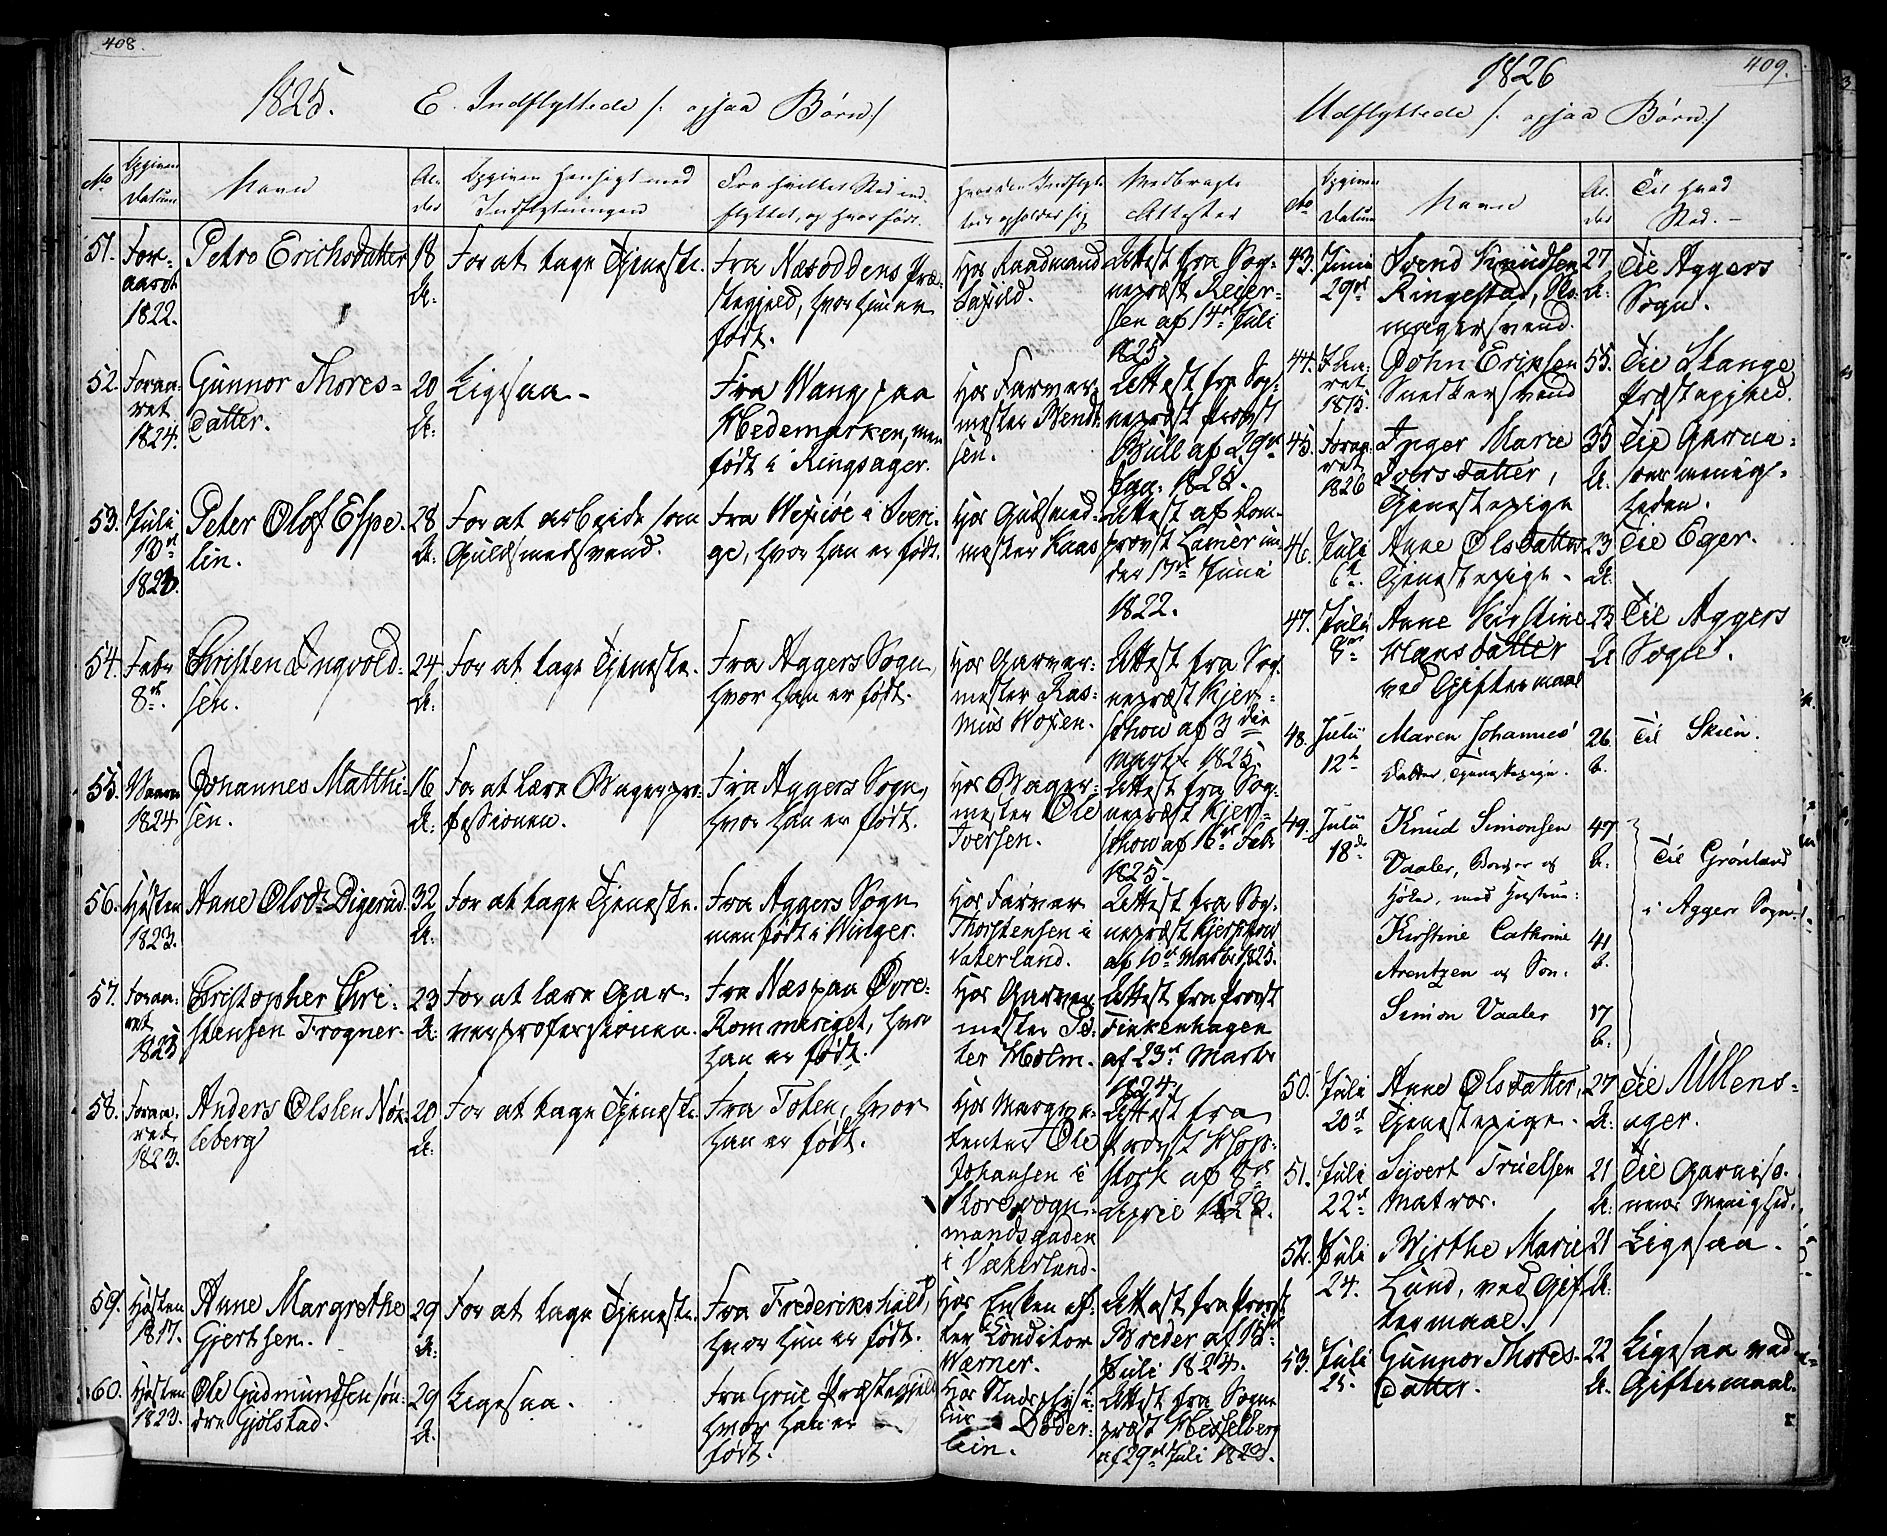 408.
1825. E. Indflyttede /: ogsaa Børn :/
No
Opgiven Datum
Navn
Al-
der
Opgiven Hensigt med
Indflytningen
Fra hvilket Sted ind-
flyttet, og hvor født.
Hvor den Indflyt-
tede opholder sig
Medbragte
Attester
51.
For-
aaret
1822.
Petro Erichsdatter
18
A:
For at tage Tjeneste.
Fra Næsoddens Præ-
stegjeld, hvor hun er
født.
Hos Raadmand
Saxild.
Attest fra Sog-
nepræst Reier-
sen af 14de Juli
1825.
52.
Foraa-
ret
1824.
Gunnor Thores-
datter.
20
A:
Ligesaa -
Fra Wang paa
Hedemarken, men
født i Ringsager.
Hos Farver-
mester Wendt-
sen.
Attest fra Sog-
nepræst Provst
Bull af 29de
Jan: 1825.
53.
Juli
13de
1823.
Peter Olof Espe-
lin.
28
A.
For at arbeide som
Guldsmedsvend.
Fra Wexiøe i Sveri-
ge, hvor han er født.
Hos Guldsmed-
mester Kaas
Attest af Dom-
provst
der 17de Juni
1822.
54.
Febr
8de
Christen Ingvold-
sen.
24
A:
For at tage Tjeneste.
Fra Aggers Sogn,
hvor han er født.
Hos Garver-
mester Ras-
mus Woxen.
Attest fra Sog-
nepræst Kjer-
schow af 3die
Marts 1825.
55.
1824
Johannes Matthi-
sen.
16
A:
For at lære Bagerpro-
fessionen.
Fra Aggers Sogn,
hvor han er født.
Hos Bager-
mester Ole
Iversen.
Attest fra Sog-
nepræst Kjer-
schow af 16de Febr
1825.
56.
Høsten
1823.
Anne Olsdr Digerud
32
A:
For at tage Tjeneste.
Fra Aggers Sogn
men født i Winger.
Hos Farver
Thorstensen i
Vaterland.
Attest fra Sog-
nepræst Kjerschow
af 10de Marts 1825.
57.
Foraa-
ret
1823
Christopher Chri-
stensen Frogner.
23
A:
For at lære Gar-
verprofessionen.
Fra Næs paa Øvre-
Rommeriget, hvor
han er født.
Hos Garver-
mester Pe-
ter Holm.
Attest fra Provst
Finkenhagen
af 23de Marts
1824.
58.
Foraa-
ret
1823.
Anders Olsen Nøk-
leberg
20
A:
For at tage Tjeneste
Fra Toten, hvor
han er født.
Hos Marque-
tenter Ole
Johansen i
Store Vogn-
mandsgaden
i Vaterland.
Attest fra
Provst Klop-
stock af 8de
April 1823.
59.
Høsten
1817.
Anne Margrethe
Gjertsen.
29
A:
For at tage Tjeneste.
Fra Frederikshald,
hvor hun er født.
Hos Enken ef-
ter Conditor
Wærner.
Attest fra Provst
Breder af 15de
Juli 1824.
60.
Høsten
1823.
Ole Gudmundsen søn-
dre Gjølstad.
29
A.
Ligesaa.
Fra Grue Præstegjeld
hvor han er
født.
Hos Stads
Døder-
lein.
Attest fra Sogne
præst Hesselberg
af 29de Juli 1823.
1826
409.
Udflyttede /: ogsaa Børn :/
No
Opgiven
Datum
Navn
Al-
der
Til hvad
Sted. -
43.
Juni
29de
Svend Knudsen
Ringestad, Sko-
magersvend.
27
A.
Til Aggers
Sogn.
44.
Foraa-
ret
1815.
John Eriksen
Snedkersvend
55.
Til Stange
Præstegjeld.
45.
Foraa-
ret
1826
Inger Marie
Iversdatter,
Tjenestepige
35
A.
Til Garni-
sons menig-
heden.
46.
Juli
6te
Anne Olsdatter
Tjenestepige -
23
A.
Til Eger.
47.
Juli
8de
Anne Kirstine
Hansdatter
ved Giftermaal
25
A
Til Aggers
Sogn.
48.
Julii
12te
Maren Johannes
Datter, Tjenestepige.
26
A.
Til Skien.
49.
Julii
18de
Knud Simonsen
Vaaler, Borger og
Høker, med Hustru:
Kirstine Cathrine
Arentzen og Søn.
Simon Vaaler
47
A.
41
A.
17
A.
Til Grønland
i Aggers Sogn.
50.
Juli
20de
Anne Olsdatter,
Tjenestepige.
27
A.
Til Ullens-
ager.
51.
Juli
22de
Sivert Truelsen
Matros.
21
A:
Til Garniso-
nens Menighed.
52.
Juli
24.
Birthe Marie
Lund, ved Gif-
termaal.
21
A:
Ligesaa.
53.
Juli
25.
Gunnor Thores-
datter.
22
A.
Ligesaa ved
Giftermaal.